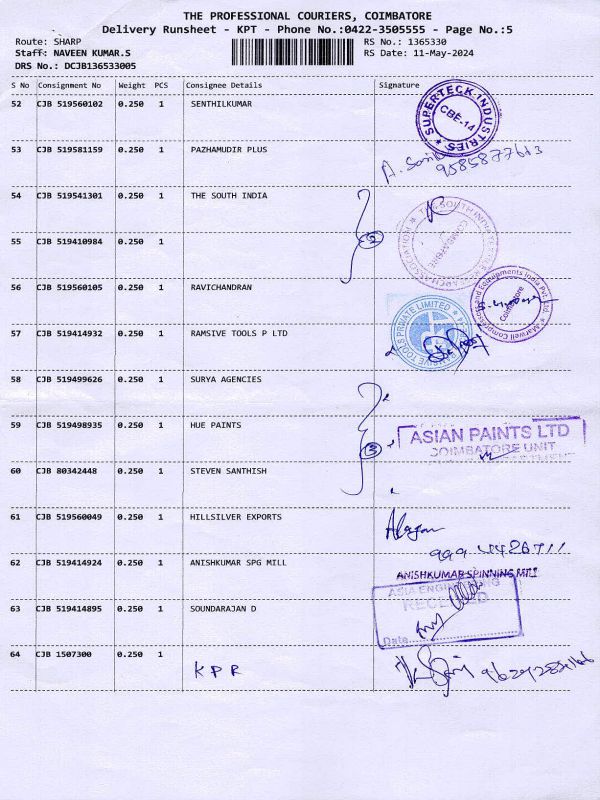 THE PROFESSIONAL COURIERS, COIMBATORE
Delivery Runsheet - KPT - Phone No.:0422-3505555 - Page No.:5
Route: SHARP
RS No.: 1365330
Staff: NAVEEN KUMAR.S
RS Date: 11-May-2024
DRS No.: DCJB136533005
S No Consignment No Weight PCS Consignee Details Signature
52 CJB 519560102 0.250 1 SENTHILKUMAR
SUPERTECK INDUSTRIES
CBE-14
53 CJB 519581159 0.250 1 PAZHAMUDIR PLUS
54 CJB 519541301 0.250 1 THE SOUTH INDIA
COIMBATORE
55 CJB 519410984 0.250 1
2
56 CJB 519560105 0.250 1 RAVICHANDRAN
Coimbatore
57 CJB 519414932 0.250 1 RAMSIVE TOOLS P LTD
58 CJB 519499626 0.250 1 SURYA AGENCIES
59 CJB 519498935 0.250 1 HUE PAINTS
ASIAN PAINTS LTD
COIMBATORE UNIT
3
60 CJB 80342448 0.250 1 STEVEN SANTHISH
61 CJB 519560049 0.250 1 HILLSILVER EXPORTS
62 CJB 519414924 0.250 1 ANISHKUMAR SPG MILL
ANISHKUMAR SPINNING MILL
63 CJB 519414895 0.250 1 SOUNDARAJAN D
RECEIVED
Date
64 CJB 1507300 0.250 1 KPR